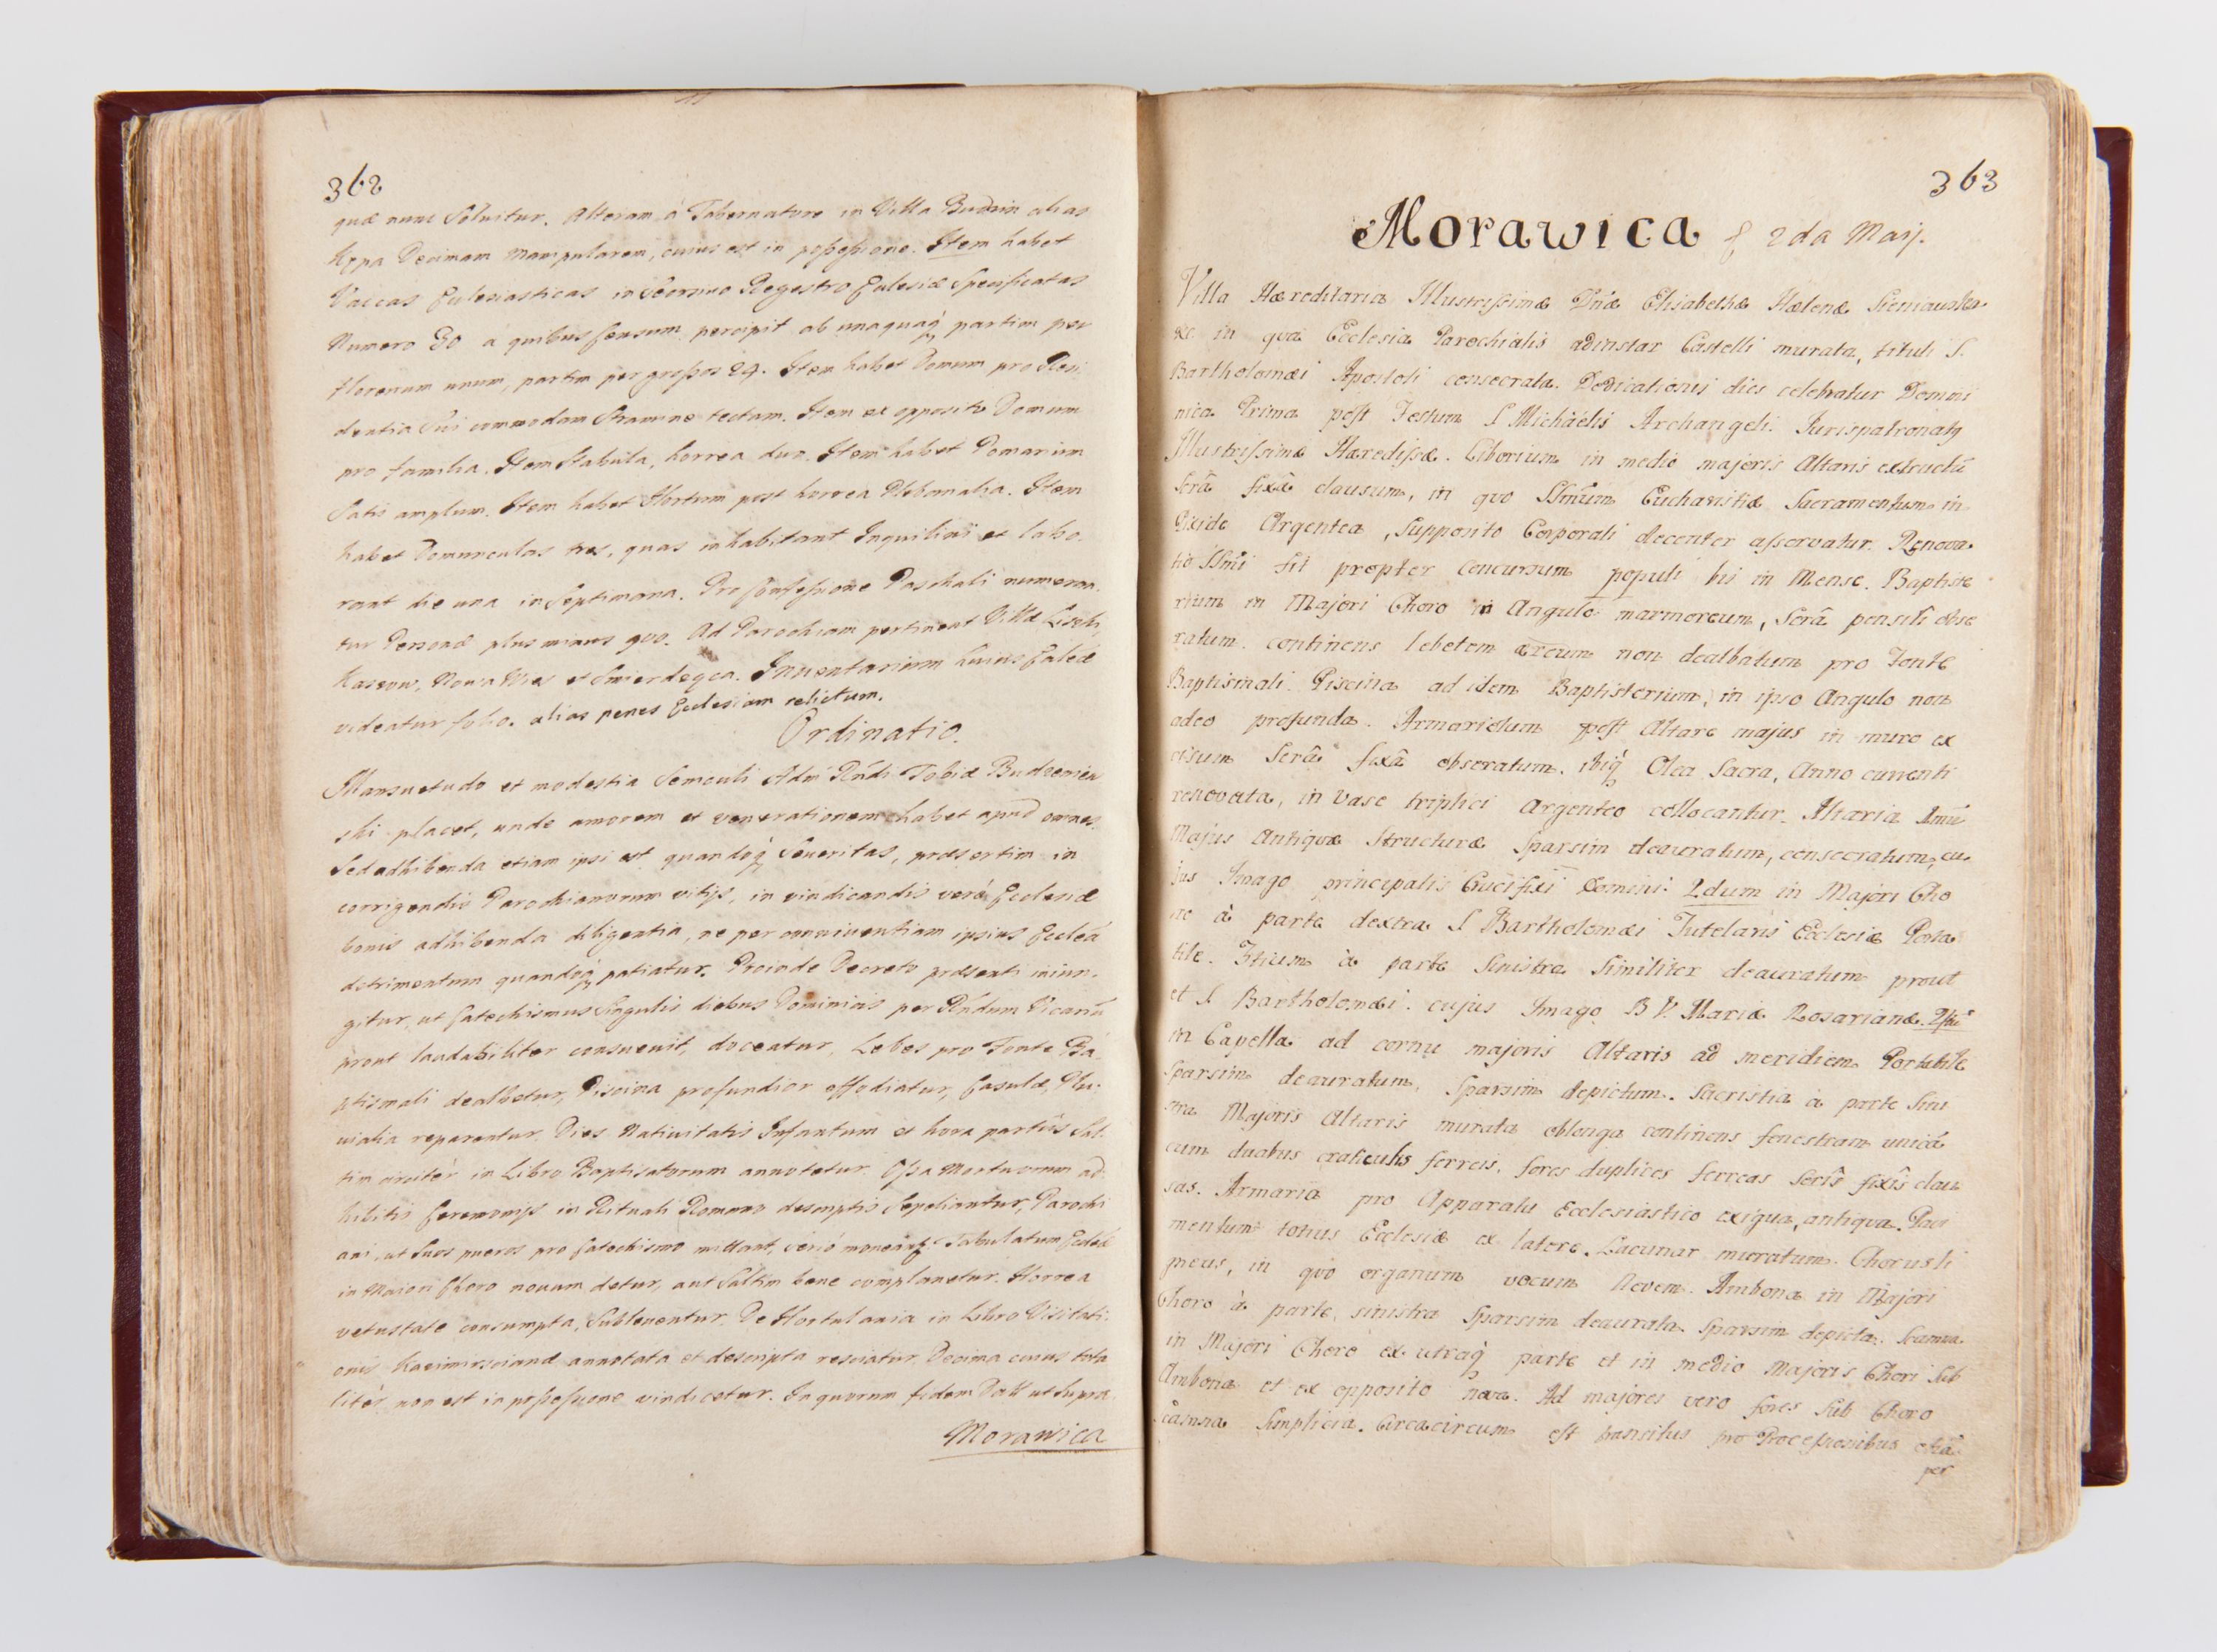 362
quæ nunc Solvitur. Alteram à Tabernatore in Villa Budzin alias
Kępa Decimam Manipularem, cuius est in poſseſsione. Item habet
Vaccas Ecclesiasticas in Regestro Ecclesiæ Specificatas
Numero 30 à quibus Censum percipit ab unaquaq partim per
florenum unum, partim per groſsos 24. Item habet Domum pro Resi
dentia Sui commodam Stramine tectam. Item ex opposito Domum
pro familia. Item Stabula, horrea duo. Item habet Pomarium
Satis amplum. Item habet Hortum post horrea Plebanalia. Item
habet Domunculas tres, quas inhabitant Inquilini et labo-
rant die una in Septimana. Pro Confeſsione Paschali numeran-
tur Personæ plus minus 900. Ad Parochiam pertinent Villæ Liszki,
Kaszow, Nowa Wies et Smierdzęca. Inventarium huius Ecclæ
videatur folio. alias penes Ecclesiam relictum.
Ordinatio.
Mansuetudo et modestia Semculi Adm Rndi Tobiæ Budzenien
ski placet, unde amorem et venerationem habet apud omnes.
Sed adhibenda etiam ipsi est quandoq Severitas, præsertim in
corrigendis Parochianorum vitijs, in vindicandis verò Ecclesiæ
bonis adhibenda diligentia, ne per conniventiam ipsius Ecclea
detrimentum quandoq patiatur. Proinde Decreto præsenti iniun-
gitur, ut Catechismus Singulis diebus Dominicis per Rndum Vicariū
prout laudabiliter consuevit, doceatur, Lebes pro Fonte Ba-
ptismali dealbetur, Piscina profundior effodiatur, Casulæ, Plu-
vialia reparentur. Dies Nativitatis Infantum et hora partûs Sal-
tim circitèr in Libro Baptisatorum annotetur. Oſsa Mortuorum ad-
hibitis Ceremonijs in Rituali Romano descriptis Sepeliantur, Parochi
ani, ut Suos pueros pro Catechismo mittant, seriò moneantʒ. Tabulatum Ecclæ
in Maiori Choro novum detur, aut Saltim bene complanetur. Horrea
vetustate consumpta, Subleventur. De Hortulania in Libro Visitati-
onis Kazimirsciana annotata et descripta resciatur. Decima cuius tota
litèr non est in poſseſsione vindicetur. In quorum fidem Datt ut Supra.
Morawica
363
Morawica 2da Maij.
Villa Hæreditaria Illustriſsimæ Dnæ Elisabethæ Helenæ Sieniawska
&c in qua Ecclesia Parochialis adinstar Castelli murata, tituli S.
Bartholomæi Apostoli consecrata. Dedicationis dies celebratur Domini
nica Prima post Festum S Michäelis Archangeli. Jurispatronatʒ
Illustriſsimæ Hærediſsæ. Ciborium in medio majoris Altaris extructū
Serâ fixâ clausum, in quo SSmum Eucharistiæ Sacramentum in
Pixide Argentea, Supposito Corporali decenter aſservatur. Renova-
tio SSmi fit propter Concursum populi bis in Mense. Baptiste
rium in Majori Choro in Angulo marmoreum, Serâ pensili obse
ratum. continens lebetem æreum non dealbatum pro Fonte
Baptismali. Piscina ad idem Baptisterium, in ipso Angulo non
adeo profunda. Armariolum post Altare majus in muro ex
cisum Serâ fixâ obseratum. ibiq Olea Sacra, Anno currenti
renovata, in Vase triplici Argenteo collocantur. Altaria 1mū
Majus Antiquæ Structuræ Sparsim deauratum, consecratum, cu-
jus Imago principalis Crucifixi Domini: 2dum in Majori Cho
ro à parte dextra S Bartholomæi Tutelaris Ecclesiæ Porta
tile. 3tium à parte Sinistra Similiter deauratum prout
et S. Bartholomæi. cujus Imago B V. Mariæ Rosarianæ.
in Capella ad cornu majoris Altaris ad meridiem Portatile
Sparsim deauratum, Sparsim depictum. Sacristia à parte Sini
stra Majoris Altaris murata oblonga continens fenestram unicā
cum duabus craticulis ferreis, fores duplices ferreas Serîs fixîs clau
sas. Armaria pro Apparatu Ecclesiastico exigua, antiqua. Pavi
mentum totius Ecclesiæ ex latere. Lacunar muratum. Chorus li
gneus, in quo organum vocum Novem. Ambona in Majori
Choro à parte sinistra Sparsim deaurata Sparsim depicta. Scamna
in Majori Choro ex utraq parte et in medio Majoris Chori Sub
Ambona et ex opposito nova. Ad majores vero fores Sub Choro
scamna Simplicia. Circacircum est transitus pro Proceſsionibus etiā
per